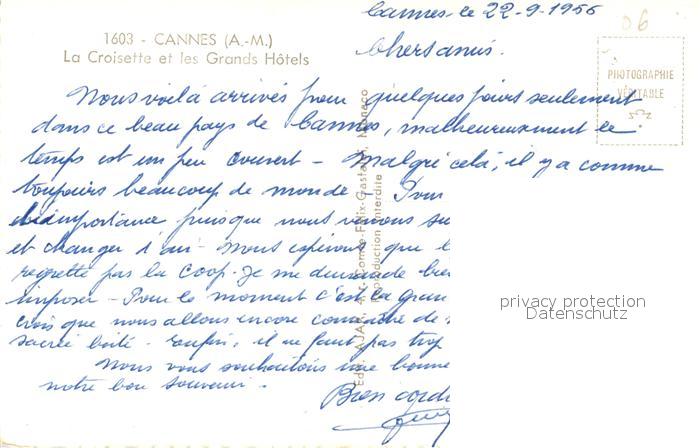 Cannes le 22-9-1956
06
1603 - CANNES (A.-M.)
La Croisette et les Grands Hôtels
Chers amis.
PHOTOGRAPHIE
VÉRITABLE
Nous voilà arrivés pour quelques jours seulement
dans ce beau pays de Cannes, malheureusement le
temps est un peu couvert - Malgré celà, il y a comme
toujours beaucoup de monde ! Pour
importance puisque nous venons su
et changer d'air - Nous espérons que l
regrette pas la Coop. Je me demande bie
imposer - Pour le moment c'est la gran
crois que nous allons encore de
sacré boîté - enfin, il ne faut pas trop
Nous vous souhaitons une bonne
notre bon souvenir -
Bien cordi
Edit. AJAX, Av. Comte-Félix-Gastaldi, Monaco
Reproduction interdite
privacy protection
Datenschutz